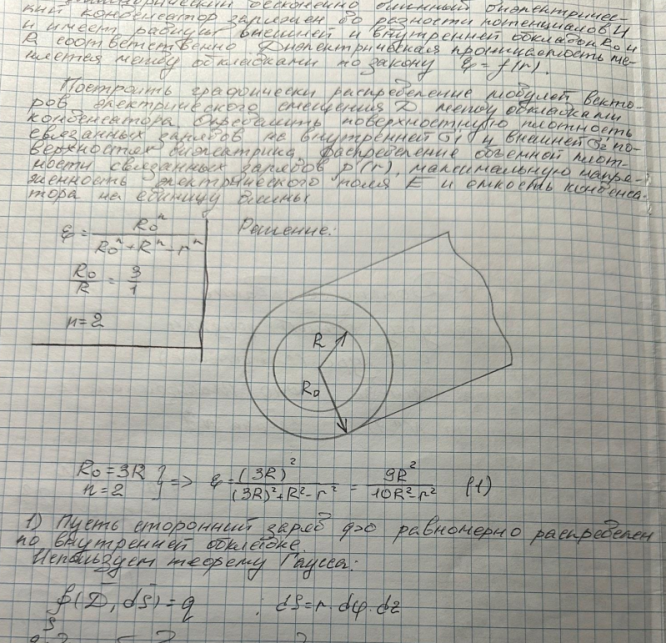 бесконечно длинный диэлектричес-
кий конденсатор заряжен до разности потенциалов U
и имеет радиусы внешней и внутренней обкладок R₀ и
R соответственно Диэлектрическая проницаемость ме-
няется между обкладками по закону ε = f(r).
Построить графически распределение модулей векто-
ров электрического смещения D между обкладками
конденсатора Определить поверхностную плотность
связанных зарядов на внутренней σ₁' и внешней σ₂' по-
верхностях диэлектрика, распределение объемной плот-
ности связанных зарядов ρ'(r), максимальную напря-
женность электрического поля E и емкость конденса-
тора на единицу длины
ε = R₀ⁿ / (R₀ⁿ + Rⁿ - rⁿ)
R₀/R = 3/1
n = 2
Решение:
R
R₀
R₀ = 3R
n = 2
} => ε = (3R)² / ((3R)² + R² - r²) = 9R² / (10R² - r²) (1)
1) Пусть сторонний заряд q>0 равномерно распределен
по внутренней обкладке
Используем теорему Гаусса:
∮(D, dS) = q ; dS = r · dφ · dz
S